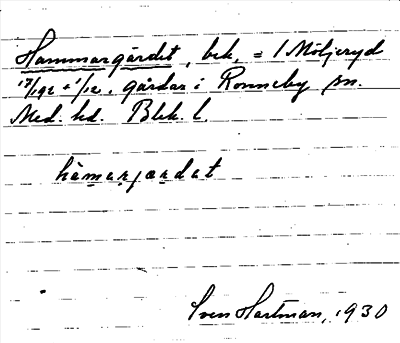 Hammargärdet, bek. = 1 Möljeryd
17/192 + 1/12, gårdar i Ronneby sn.
Med. hd. Blek. l.
hàmarjærdat
Sven Hartman, 1930